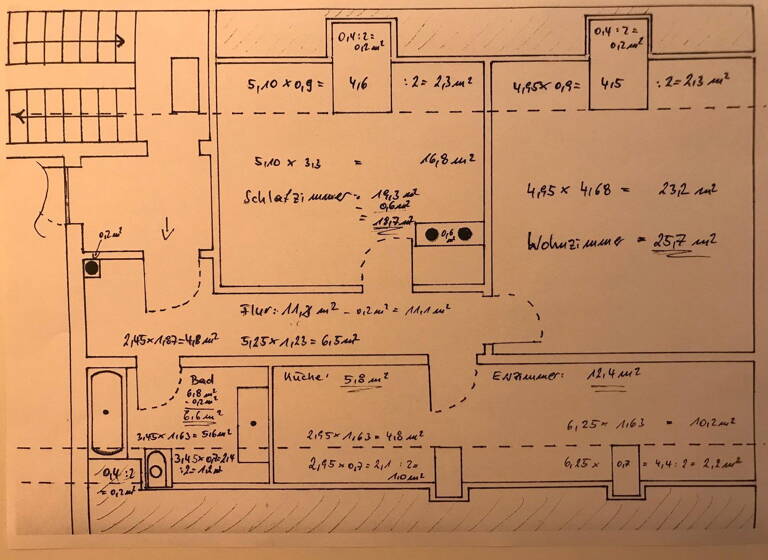 0,4:2=
0,2m²
0,4:2=
0,2m²
5,10 x 0,9 = 4,6 :2= 2,3m²
4,95 x 0,9= 4,5 :2= 2,3 m²
5,10 x 3,3 = 16,8 m²
Schlafzimmer = 19,3 m²
- 0,6 m²
= 18,7 m²
0,6 m²
4,95 x 4,68 = 23,2 m²
Wohnzimmer = 25,7 m²
0,2m²
Flur: 11,3 m² - 0,2 m² = 11,1 m²
2,45 x 1,87 = 4,8 m²
5,25 x 1,23 = 6,5 m²
Bad
6,8 m²
- 0,2 m²
6,6 m²
3,45 x 1,63 = 5,6 m²
3,45 x 0,7 = 2,4
:2 = 1,2 m²
0,4 :2
= 0,2 m²
Küche: 5,8 m²
2,95 x 1,63 = 4,8 m²
2,95 x 0,7 = 2,1 :2=
1,0 m²
Eßzimmer: 12,4 m²
6,25 x 1,63 = 10,2 m²
6,25 x 0,7 = 4,4 :2 = 2,2 m²